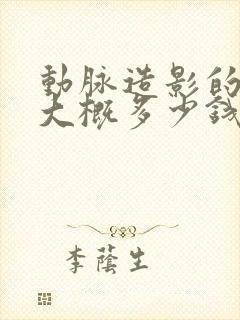 動脉造影的
大概多少钱
李蔭生